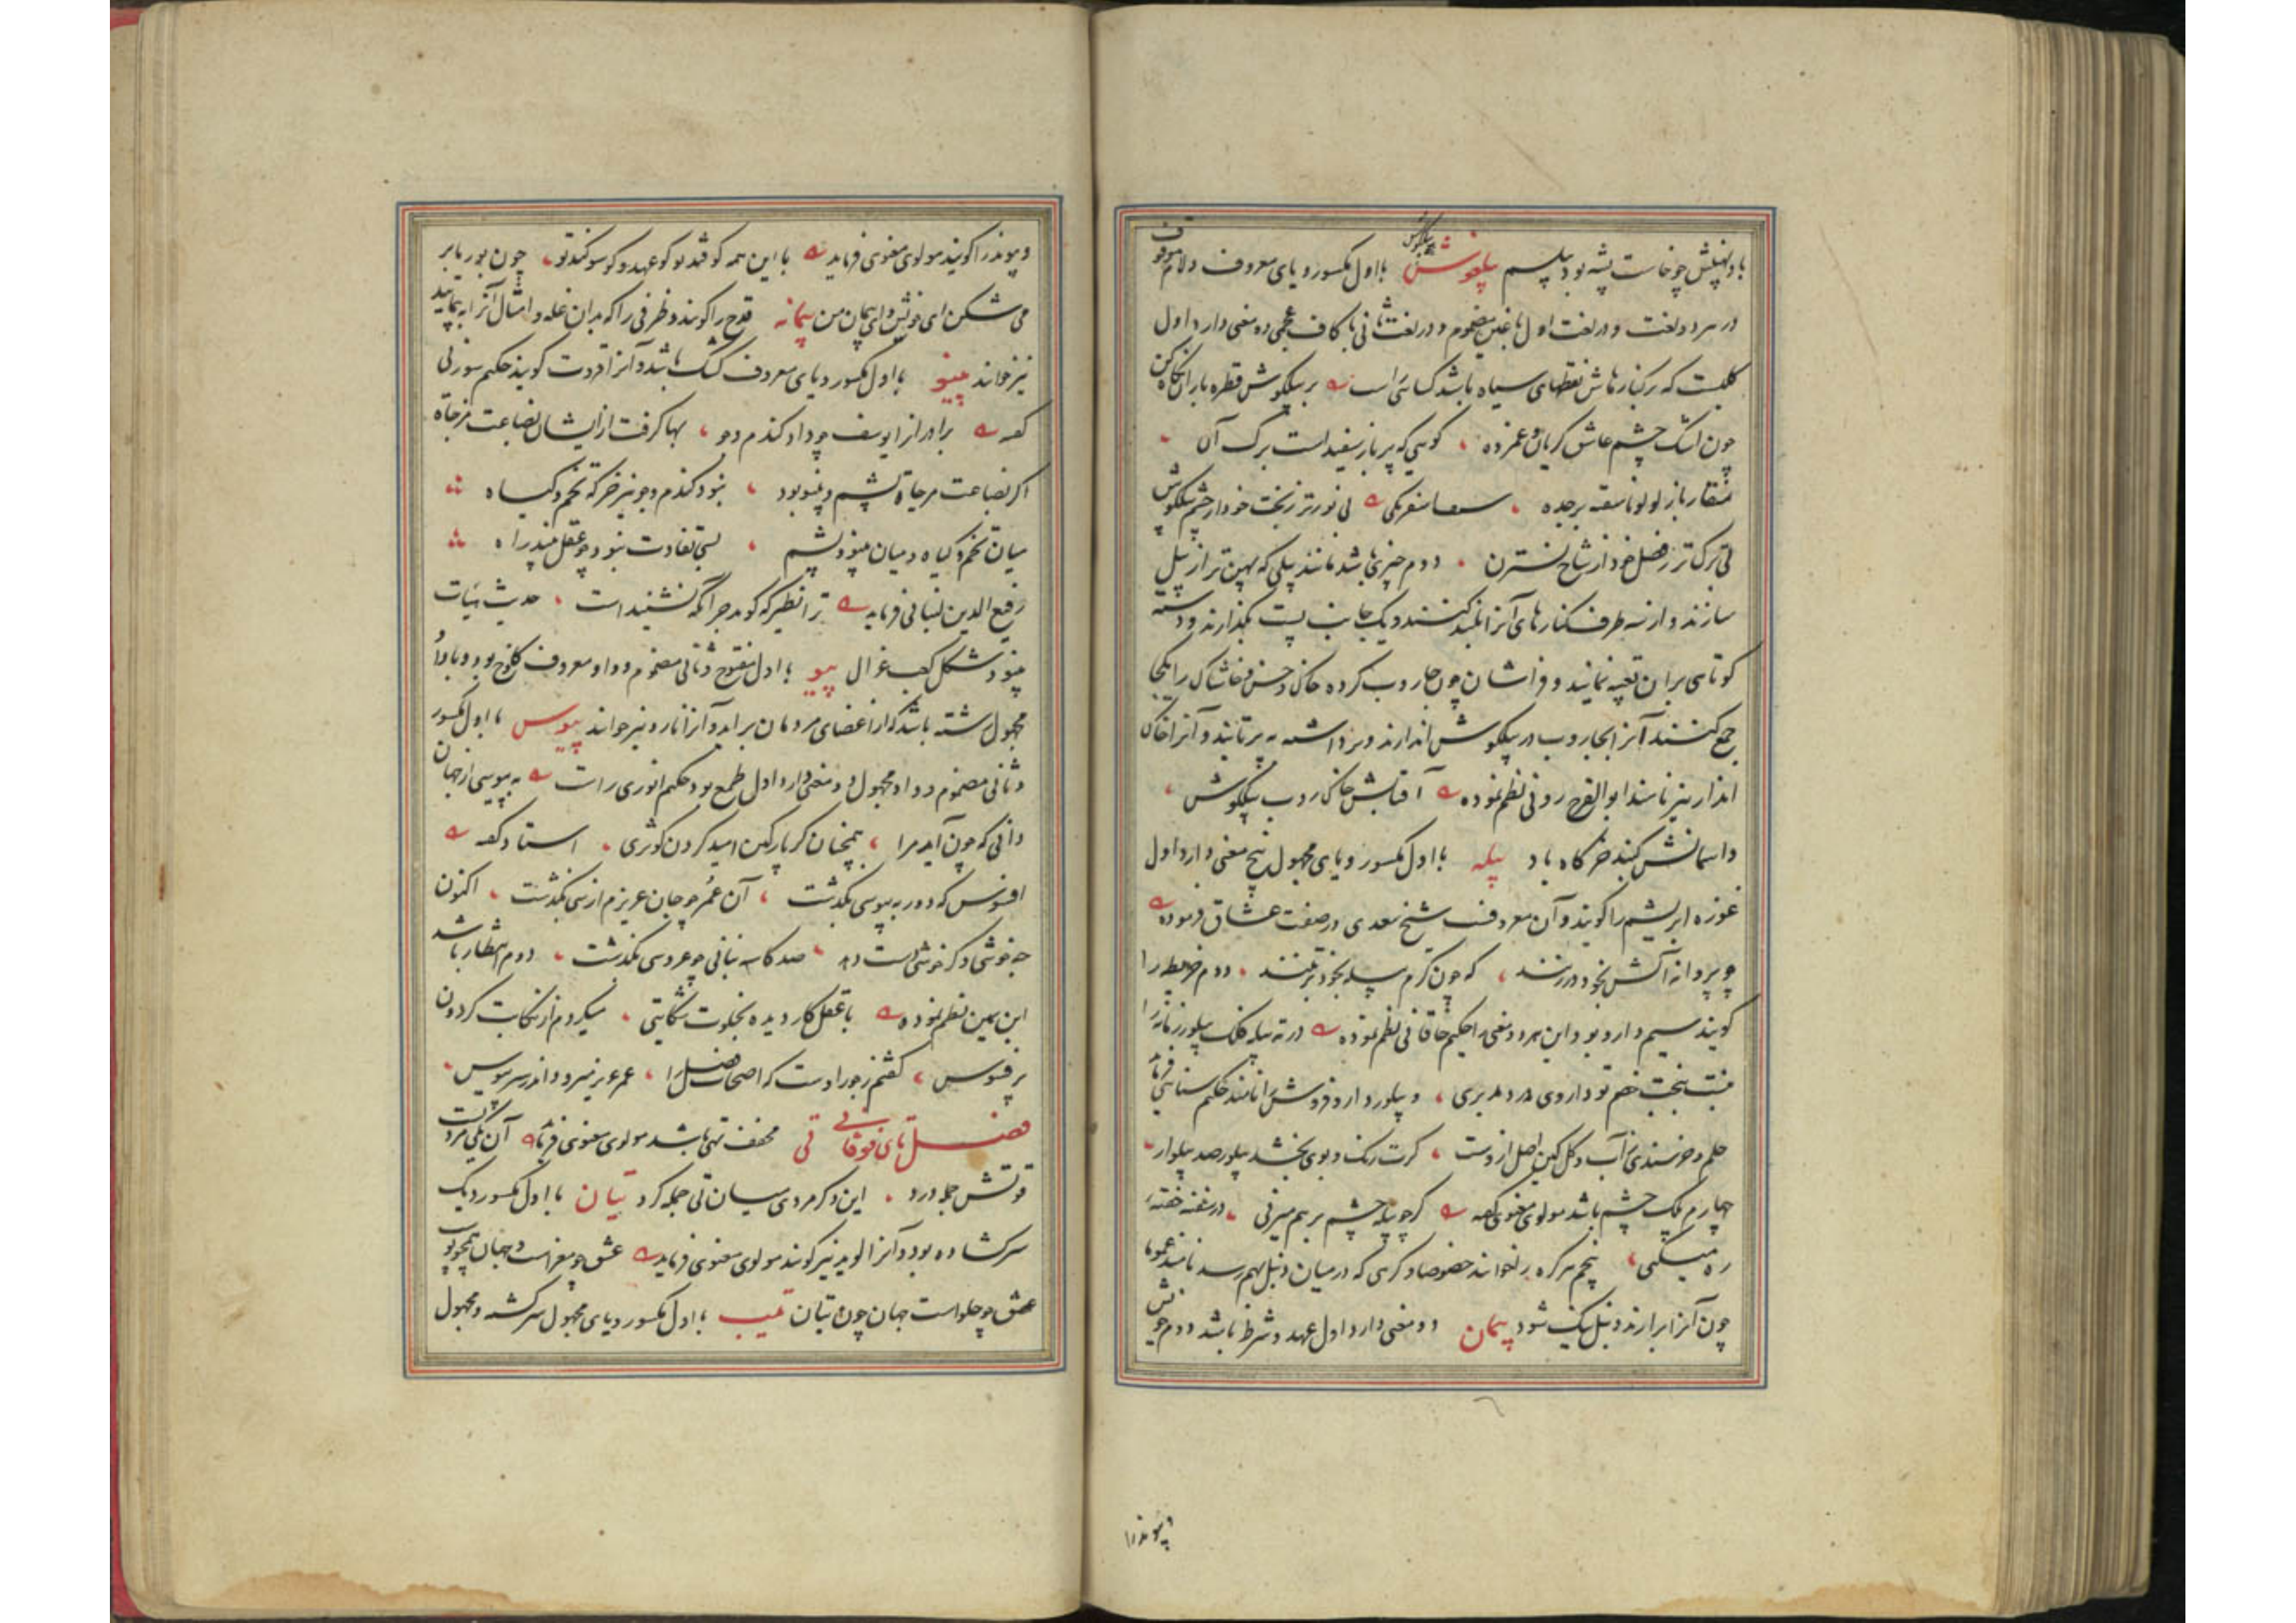 باد نهیلش چو خاست پشه بود پیلسم پیلغوش پیلگوش با اول مکسور و یای معروف و لام موقوف
در هر دو لغت و در لغت اول با غین مضموم و در لغت ثانی با کاف عجمی دو معنی دارد اول
گلیست که بر کنارهاش نقطهای سیاه باشد کسائی راست بر پیلگوش قطره باران نگاه کن
چون اشک چشم عاشق گریان و غمزده گویی که پر باز سفید است برگ آن
منقار باز لولو ناسفته برچده سفرنگی بی نورتر ز بخت خود از چشم پیلگوش
بی برگ تر ز فضل خود از شاخ نسترن دوم چیزی باشد مانند بیلی که پهن تر از بیل
سازند و از سه طرف کنارهای آنرا بلند کنند و یک جانب پست بگذارند و دسته
کوتاهی بران تعبیه نمایند و فراشان چون جاروب کرده خاک و خس و خاشاک را یکجا
جمع کنند آنرا بجاروب در پیلگوش اندازند و برداشته پرتابند و آنرا خاک
انداز نیز نامند ابوالفرج رونی نظم نموده آفتابش خاک روب پیلگوش
و اسمانش گنبد خرگاه باد پیله با اول مکسور و یای مجهول پنج معنی دارد اول
غوزه ابریشم را گویند و آن معروفست شیخ سعدی در صفت عشاق فرموده
چو پروانه آتش بخود در زنند که چون کرم پیله بخود بر تنند دوم خریطه را
گویند سیم دارو بود و این هر دو معنی را حکیم خاقانی نظم نموده در ته پیله فلک پیلور زمانه را
نیست ببخت خصم تو داروی درد مدبری و پیلور دارو فروش را نامند حکیم سنایی فرماید
حلم و خرسندی در آب و گل کین اصل ازوست گرت رنگ و بوی بخشد پیلور صد پیلوار
چهارم پلک چشم باشد مولوی معنوی گفته گرچو پیله چشم بر هم میزنی در سفینه خفته
ره میکنی پنجم هر گره را خوانند خصوصا و گرهی که در میان دنبل بهم رسد نامند عموما
چون آنرا برارند دنبل نیک شود پیمان دو معنی دارد اول عهد و شرط باشد دوم خویش
و پیوندرا
و پیوند را گویند مولوی معنوی فرماید با این همه کو قند تو کو عهد و کو سوگند تو چون بوریا بر
می شکن ای خویش و ای پیمان من پیمانه قدح را گویند و ظرفی را که بدان غله و امثال آنرا به پیمایند
نیز خوانند پینو با اول مکسور و یای معروف کشک باشد و آنرا قروت گویند حکیم سوزنی
گفته برادران را یوسف چو داد گندم و جو بها گرفت از ایشان بضاعت مزجاة
اگر بضاعت مزجاة پشم و پینو بود نبود گندم و جو نیز جز که تخم و گیاه
میان تخم و گیاه و میان پینو و پشم بسی تفاوت نبود چو عقل بیند راه
رفیع الدین لنبانی فرماید ترا نظیر که گوید جز آنکه نشنیدست حدیث نسبت
پینو بشکل کعب غزال پیو با اول مفتوح و ثانی مضموم و واو معروف کلوخ بود و با واو
مجهول رشته باشد که از اعضای مردمان براید و آنرا نارو نیز خوانند پیوس با اول مکسور
و ثانی مضموم و واو مجهول دو معنی دارد اول طمع بود حکیم انوری راست به پیوسی از جهان
دانی که چون آید مرا همچنان کز پارگین امید کردن کوثری استاد گفته
افسوس که دور به پیوسی بگذشت آن عمر چو جان عزیزم از سی بگذشت اکنون
چه خوشی و گر خوشی دست دهد صد کاسه بنانی چو عروسی بگذشت دوم انتظار باشد
ابن یمین نظم نموده با عقل کار دیده بخلوت شکایتی میکردم از نکایت گردون
پر فسوس گفتم ز جور اوست که اصحاب فضل را عمر عزیز میرود اندر سر پیوس
فصل تای فوقانی تی مخفف تهی باشد مولوی معنوی فرماید آن یکی مرد
قوتش جمله درد این دگر مردی میان تی جمله گرد تیان با اول مکسور دیگ
سرگشاده بود و آنرا لوید نیز گویند مولوی معنوی فرماید عشق چو مغزاست و جهان همچو پوست
عشق چو حلواست جهان چون تیان تیب با اول مکسور و یای مجهول سرگشته و مجهول